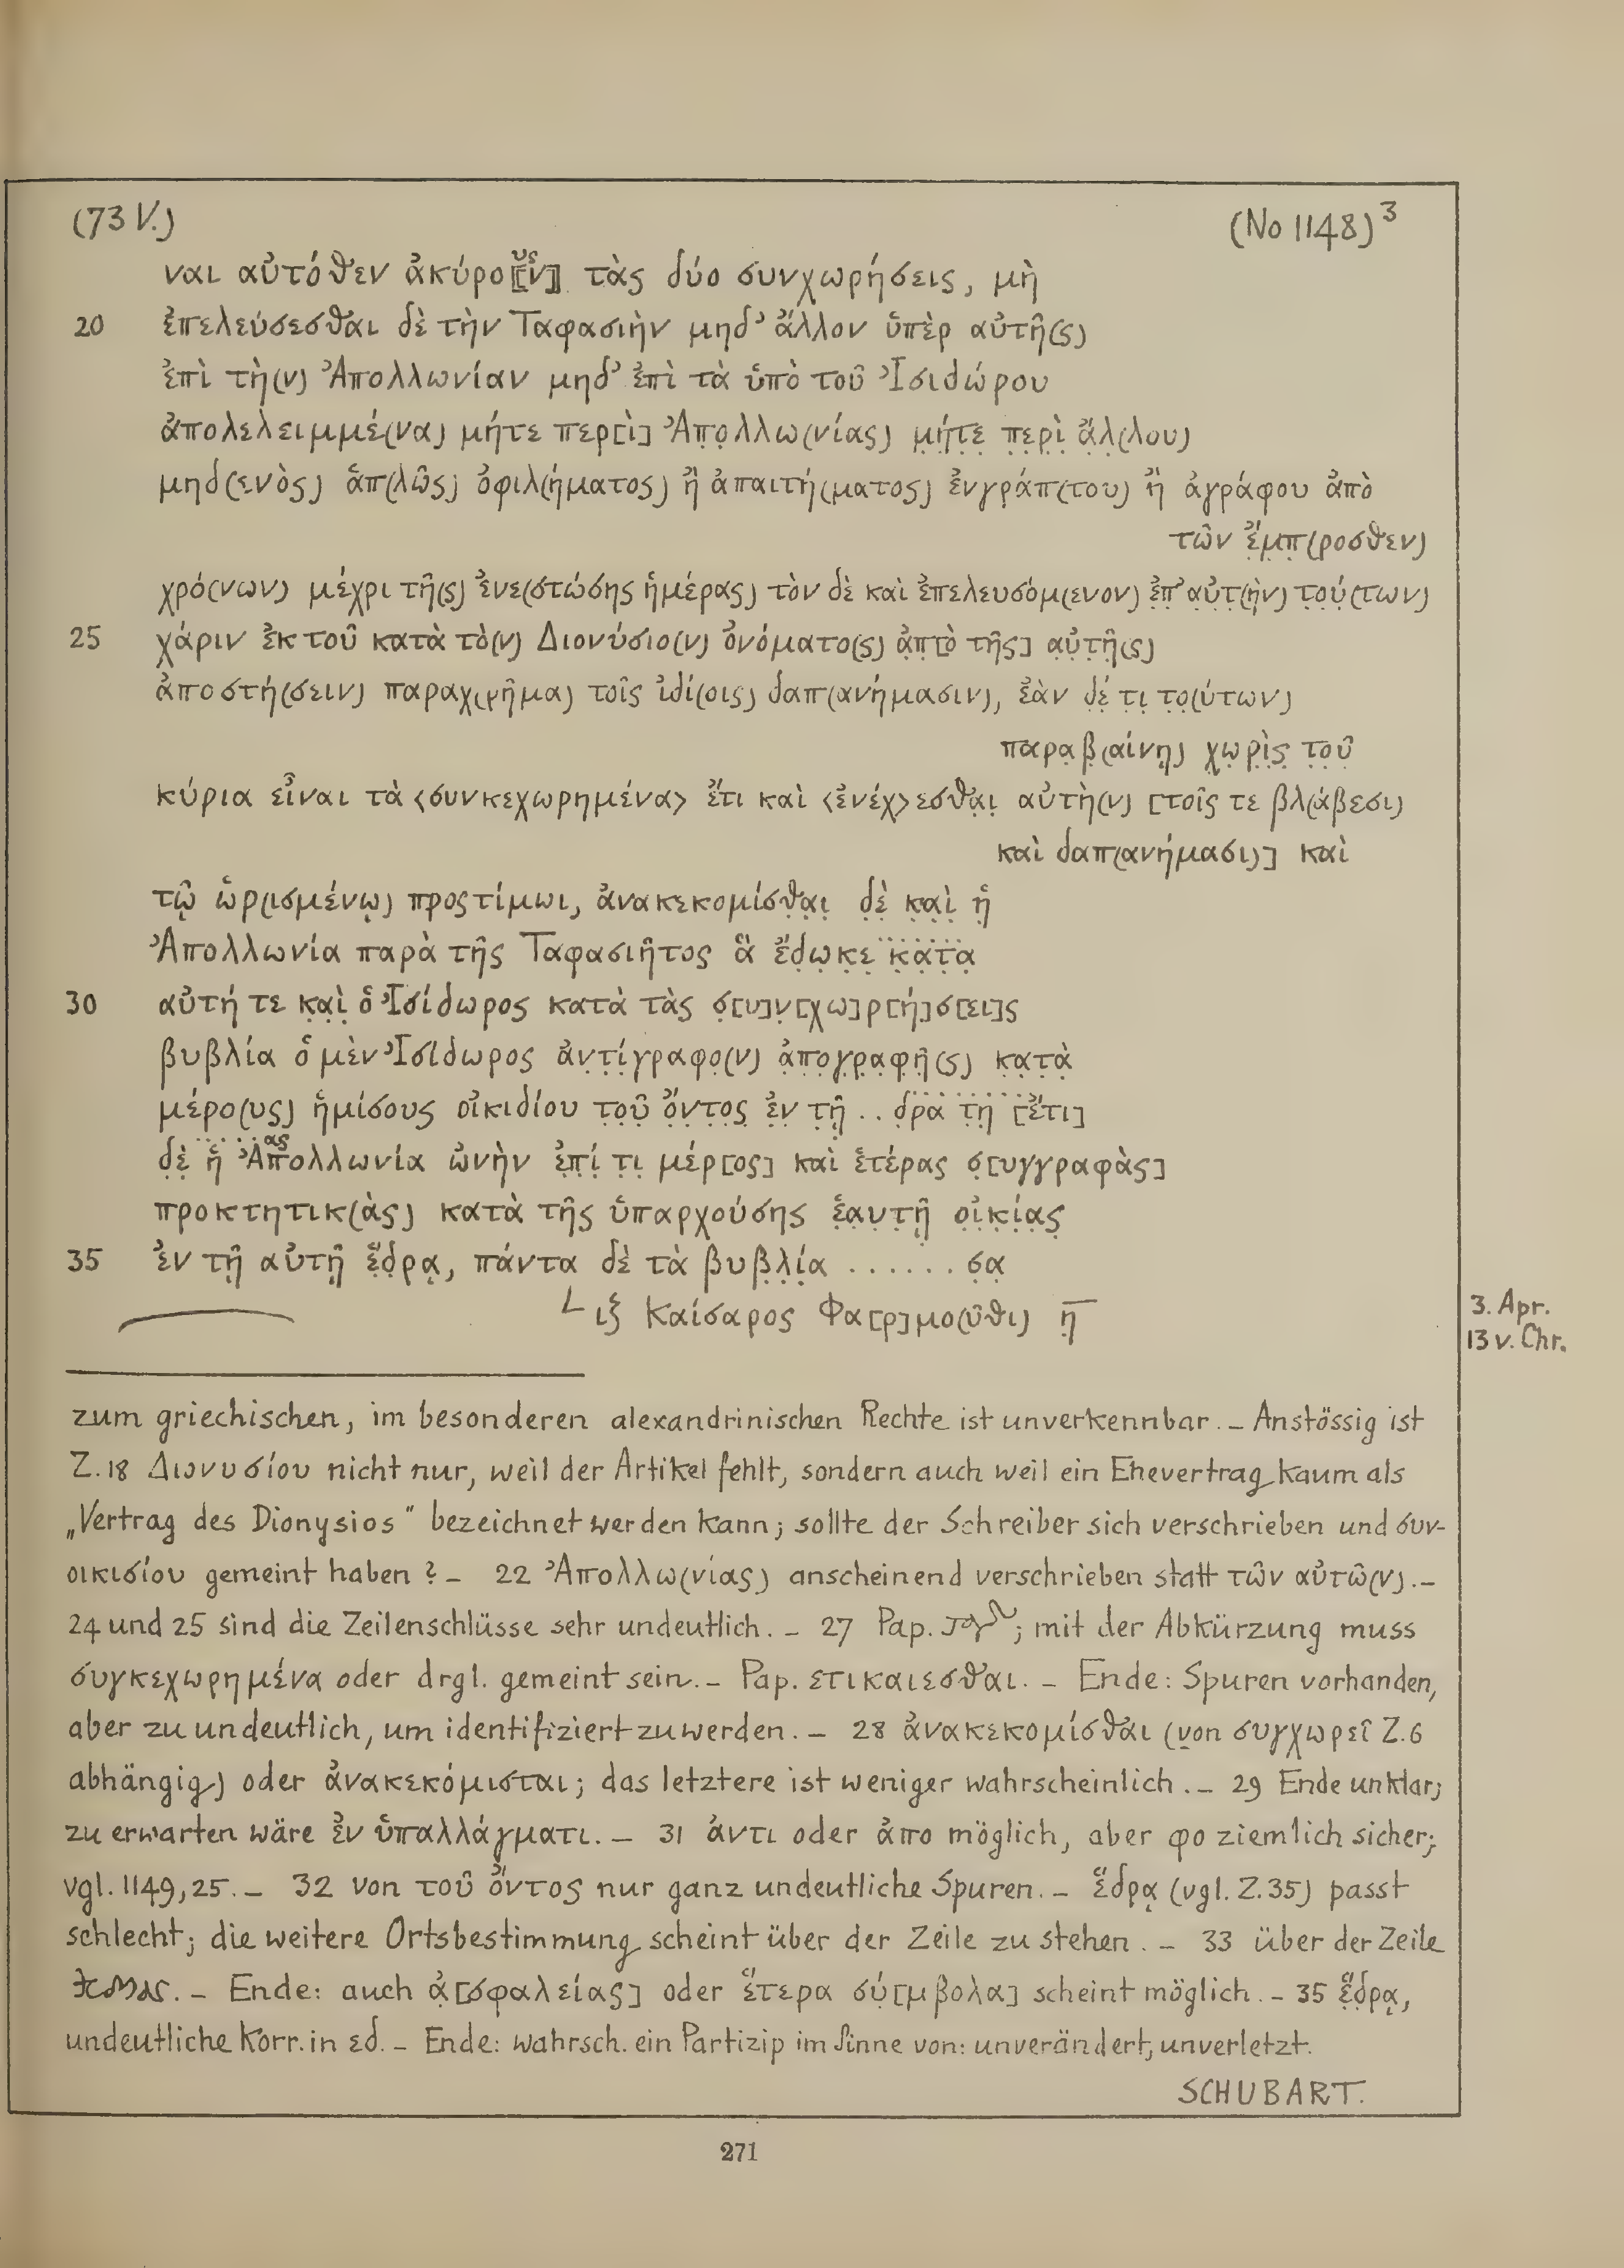 (73 V.) (No 1148)³
ναι αὐτόθεν ἀκύρο⟦ν⟧υς τὰς δύο συνχωρήσεις, μὴ
20 ἐπελεύσεσθαι δὲ τὴν Ταφασιὴν μηδ’ ἄλλον ὑπὲρ αὐτῆ(ς)
ἐπὶ τὴ(ν) Ἀπολλωνίαν μηδ’ ἐπὶ τὰ ὑπὸ τοῦ Ἰσιδώρου
ἀπολελειμμέ(να) μήτε περ[ὶ] Ἀπ̣ο̣λλω(νίας) μ̣ή̣τ̣ε̣ π̣ε̣ρ̣ὶ̣ ἄ̣λ̣(λου)
μηδ(ενὸς) ἁπ(λῶς) ὀφιλ(ήματος) ἢ ἀπαιτή(ματος) ἐνγρ̣άπ(του) ἢ ἀγράφου ἀπὸ
τῶν ἔ̣μ̣π̣(ροσθεν)
χρό(νων) μέχρι τῆ(ς) ἐνε(στώσης ἡμέρας) τὸν δὲ καὶ ἐπελευσόμ(ενον) ἐ̣π̣’ α̣ὐ̣τ̣(ὴν) τ̣ο̣ύ̣(των)
25 χάριν ἐκ τοῦ κατὰ τὸ(ν) Διονύσιο(ν) ὀνόματο(ς) ἀ̣π̣[ὸ τῆς] α̣ὐ̣τ̣ῆ̣(ς)
ἀποστή(σειν) παραχ(ρῆμα) τοῖς ἰδί(οις) δαπ(ανήμασιν), ἐὰν δ̣έ̣ τ̣ι̣ τ̣ο̣(ύτων)
παρα̣β̣(αίνῃ) χ̣ω̣ρ̣ὶ̣ς̣ τ̣ο̣ῦ̣
κύρια εἶναι τὰ <συνκεχωρημένα> ἔτι καὶ <ἐνέχ>εσθα̣ι̣ αὐτὴ(ν) [τοῖς τε βλ(άβεσι)
καὶ δαπ(ανήμασι)] καὶ
τῷ ὡρ(ισμένῳ) προςτίμωι, ἀνακεκομίσθ̣α̣ι̣ δ̣ὲ̣ κ̣α̣ὶ̣ ἡ̣
Ἀπολλωνία παρὰ τῆς Ταφασιῆτος ἃ ἔδ̣ω̣κ̣ε̣ κ̣α̣τ̣α̣
30 αὐτή τε κ̣α̣ὶ̣ ὁ Ἰσίδωρος κατὰ τὰς σ̣[υ]ν̣[χω]ρ[ή]σ[ει]ς
βυβλία ὁ μὲν Ἰσίδωρος ἀν̣τ̣ί̣γραφο̣(ν) ἀ̣π̣ο̣γ̣ρ̣α̣φ̣ῆ̣(ς) κ̣α̣τ̣ὰ̣
μέρο(υς) ἡμίσους οἰκιδίου τ̣ο̣ῦ̣ ὄ̣ν̣τ̣ο̣ς̣ ἐ̣ν̣ τ̣ῇ̣ .. δ̣ρ̣α̣ τ̣η̣ [ἔτι]
δ̣ὲ̣ ἡ̣ Ἀπολλωνίαας ὠνὴν ἐ̣π̣ί̣ τ̣ι̣ μέρ[ος] καὶ ἑτέρας σ̣[υγγραφὰς]
προκτητικ(ὰς) κατὰ τῆς ὑπαρχούσης ἑ̣α̣υ̣τ̣ῇ̣ ο̣ἰ̣κ̣ί̣α̣ς̣
35 ἐν τῇ αὐτῇ ἕ̣δ̣ρ̣ᾳ, πάντα δὲ τὰ βυβ̣λ̣ί̣α ...... σ̣α̣
└ ιξ Καίσαρος Φα[ρ]μο(ῦθι) η̣̅
3. Apr.
13 v. Chr.
zum griechischen, im besonderen alexandrinischen Rechte ist unverkennbar. – Anstössig ist
Z. 18 Διονυσίου nicht nur, weil der Artikel fehlt, sondern auch weil ein Ehevertrag kaum als
„Vertrag des Dionysios“ bezeichnet werden kann; sollte der Schreiber sich verschrieben und συν-
οικισίου gemeint haben? – 22 Ἀπολλω(νίας) anscheinend verschrieben statt τῶν αὐτῶ(ν). –
24 und 25 sind die Zeilenschlüsse sehr undeutlich. – 27 Pap. ; mit der Abkürzung muss
συγκεχωρημένα oder drgl. gemeint sein. – Pap. ετικαιεσθαι. – Ende: Spuren vorhanden,
aber zu undeutlich, um identifiziert zu werden. – 28 ἀνακεκομίσθαι (von συγχωρεῖ Z. 6
abhängig) oder ἀνακεκόμισται; das letztere ist weniger wahrscheinlich. – 29 Ende unklar;
zu erwarten wäre ἐν ὑπαλλάγματι. – 31 ἀντι oder ἀπο möglich, aber φο ziemlich sicher;
vgl. 1149,25. – 32 von τοῦ ὄντος nur ganz undeutliche Spuren. – ἕδρᾳ (vgl. Z. 35) passt
schlecht; die weitere Ortsbestimmung scheint über der Zeile zu stehen. – 33 über der Zeile
. – Ende: auch ἀ̣[σφαλείας] oder ἕτερα σύ̣[μβολα] scheint möglich. – 35 ἕ̣δ̣ρ̣ᾳ,
undeutliche Korr. in εδ. – Ende: wahrsch. ein Partizip im Sinne von: unverändert, unverletzt.
SCHUBART.
271